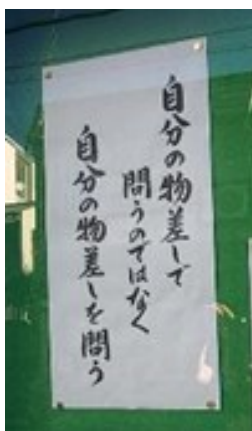 自分の物差しで
問うのではなく
自分の物差しを問う